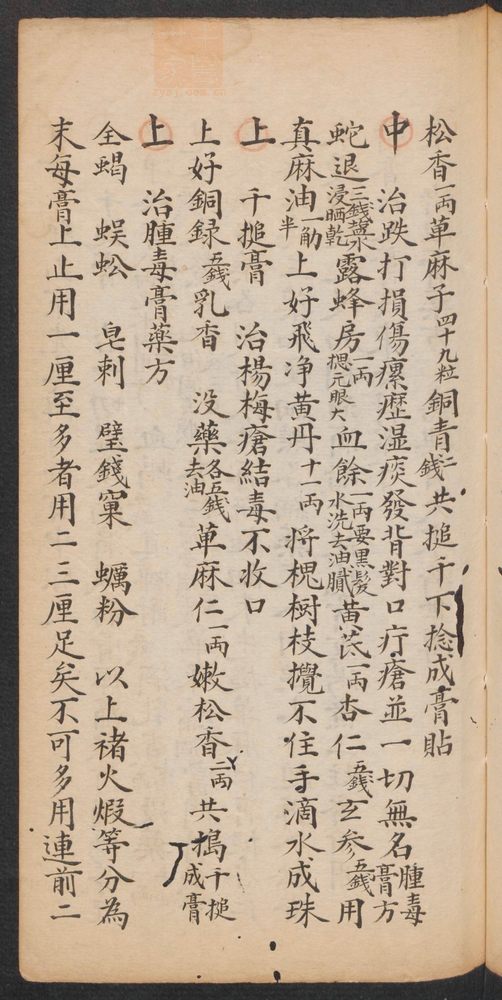 松香一两萆麻子四十九粒銅青二錢共搥千下捻成膏貼
中 治跌打損傷瘰癧湿痰發背對口疔瘡並一切無名腫毒膏方
蛇退三錢盐水浸晒乾露蜂房一两揌元眼大血餘一两要黒髮水洗去油膩黃芪一两杏仁五錢玄参五錢用
真麻油一觔半上好飛净黄丹十一两將槐樹枝攪不住手滴水成珠
上 千搥膏 治楊梅瘡結毒不收口
上好銅録五錢乳香 没藥各五錢去油萆麻仁一两嫩松香二两共搗千搥成膏
上 治腫毒膏藥方
全蝎 蜈蚣 皂刺 壁錢窠 蠣粉 以上褚火煆等分為
末每膏上止用一厘至多者用二三厘足矣不可多用連前二